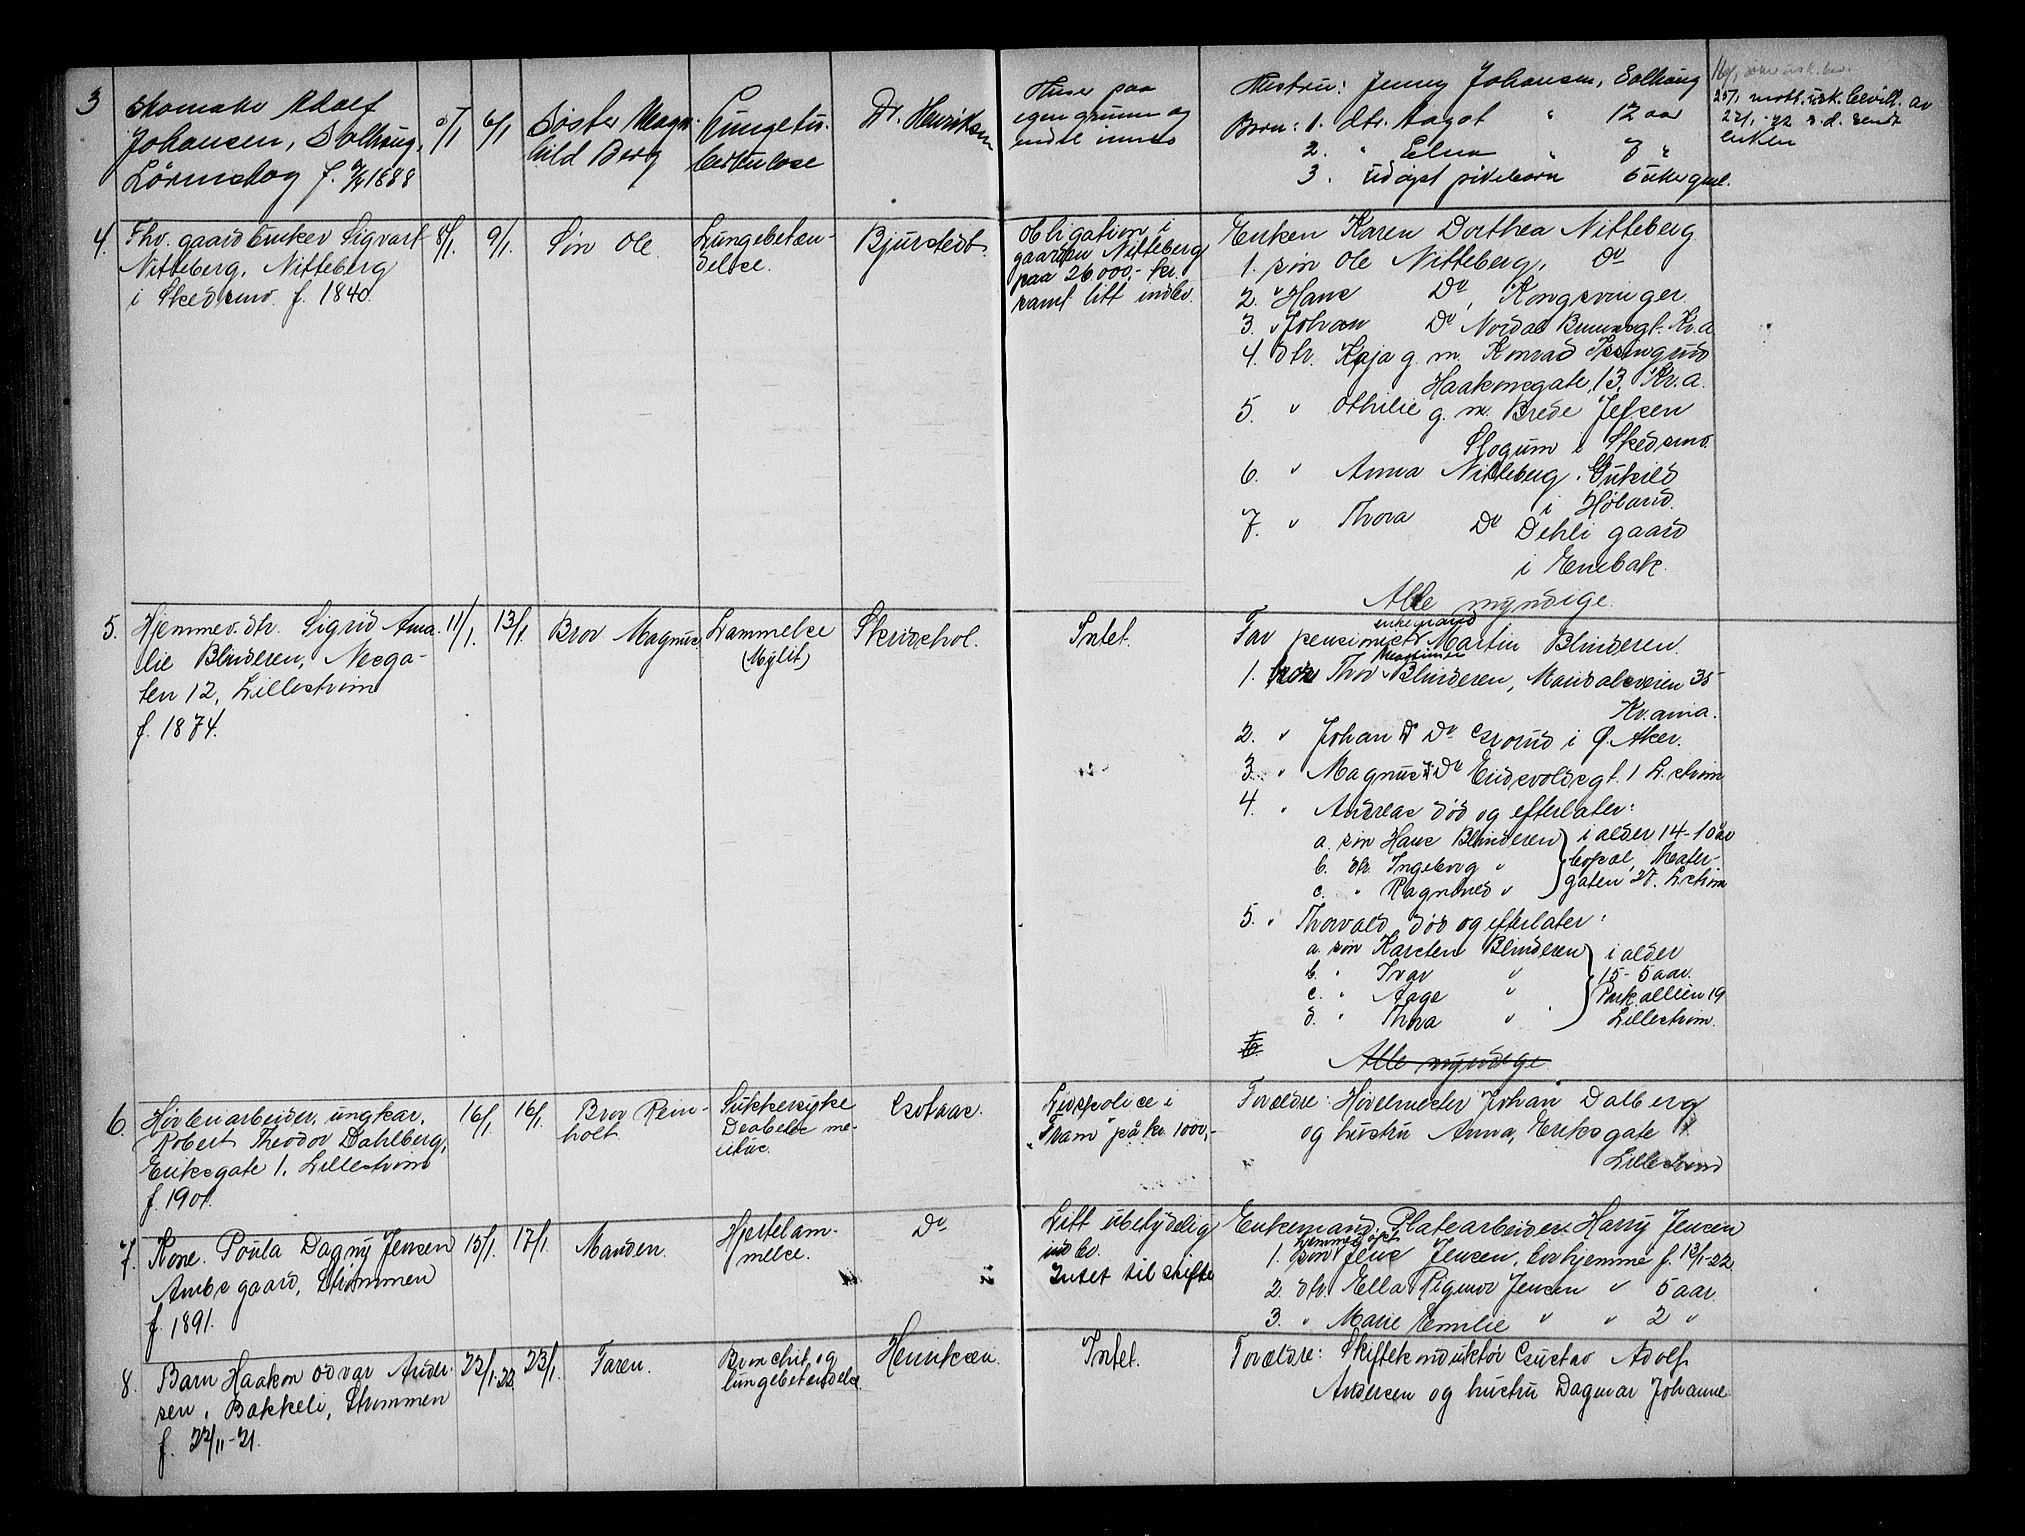 3
Skomaker Adolf
Johansen, Solhaug,
Lørenskog f. 1888
6/1
Søster Magn-
hild Berg
Lungetu-
berkulose
Dr. Henriksen
Huser paa
egen grunn og
endel innbo
Hustru: Jenny Johansen, Solhaug
Barn: 1. dtr. Aagot " 12 aar
2. " Elna " 7 "
3. udøpt pikebarn 6 uker gml.
25/1 mott. usk. bevill. av
21/1 -22 s. d. sendt
enken
4.
Fhv. gaardbruker Sigvart
Nitteberg, Nitteberg
i Skedsmo. f. 1840.
8/1.
9/1.
Søn Ole
Lungebetæn-
delse.
Bjurstedt.
Obligation i
gaarden Nitteberg
paa 26000,- kr.
samt litt indbo.
Enken Karen Dorthea Nitteberg
1. søn Ole Nitteberg, Do
2. " Hans Do, Kongsvinger
3. " Johan Do Nordal Brunsgt. Kr.a
4. dtr. Kaja g. m. Konrad Issingrud
Haakonsgate 13, Kr.a.
5. " Othilie g. m. Brede Jepsen
Slogum i Skedsmo.
6. " Anna Nitteberg,
i Høland.
7. " Thora Do Dehli gaard
i Enebak.
Alle myndige.
5.
Hjemmev. dtr. Sigrid Ama-
lie Blinderen, Nesga-
ten 12, Lillestrøm
f. 1874.
11/1.
13/1.
Bror Magnus
Lammelse
(Mylit)
Skridshol.
Intet.
enkemand
Far pensionist Martin Blinderen.
Martinius
1. bror Thor Blinderen, Mandalsveien 35
Kr.ania.
2. " Johan Do Grorud i Ø. Aker.
3. " Magnus Do Eidsvoldsgt. 1 L.strøm
4. " Andreas død og efterlater:
a. søn Hans Blinderen } i alder 14-10 år
b. dtr. Ingeborg " bopæl, Theater-
c. " Ragnhild " gaten 27. L.strøm
5. " Thorvald død og efterlater:
a. søn Karsten Blinderen } i alder
b. " Ivar " 15-5 aar.
c. " Aage " Parkalleen 19
d. " Thora " Lillestrøm.
6
Alle myndige
6.
Høvleriarbeider, ungkar,
Robert Theodor Dahlberg,
Eriksgate 1, Lillestrøm
f. 1901.
16/1.
16/1.
Bror Rein-
holt
Sukkersyke
Diabetes me-
litus.
Grotaas.
Livspolice i
"Fram" på kr. 1000,-
Forældre: Høvelmester Johan Dalberg
og hustru Anna, Eriksgate 1.
Lillestrøm
7.
Kone. Poula Dagny Jensen
Ambsgaard, Strømmen
f. 1891.
15/1.
17/1.
Manden.
Hjertelam-
melse.
Do
Litt ubetydelig
indbo.
Intet til skifte
Enkemand, Platearbeider Harry Jensen
hjemmedøpt
1. søn Jens Jensen, bor hjemme f. 13/1-22
2. dtr. Ella Rigmor Jensen " 5 aar.
3. " Marie Emilie " " 2 "
8.
Barn Haakon Odvar Ander-
sen, Bakkeli, Strømmen
f. 22/11-21.
22/1.22
23/1.
Faren.
Bronchit og
lungebetændelse
Henriksen.
Intet.
Forældre: Skiftekonduktør Gustav Adolf
Andersen og hustru Dagmar Johanne